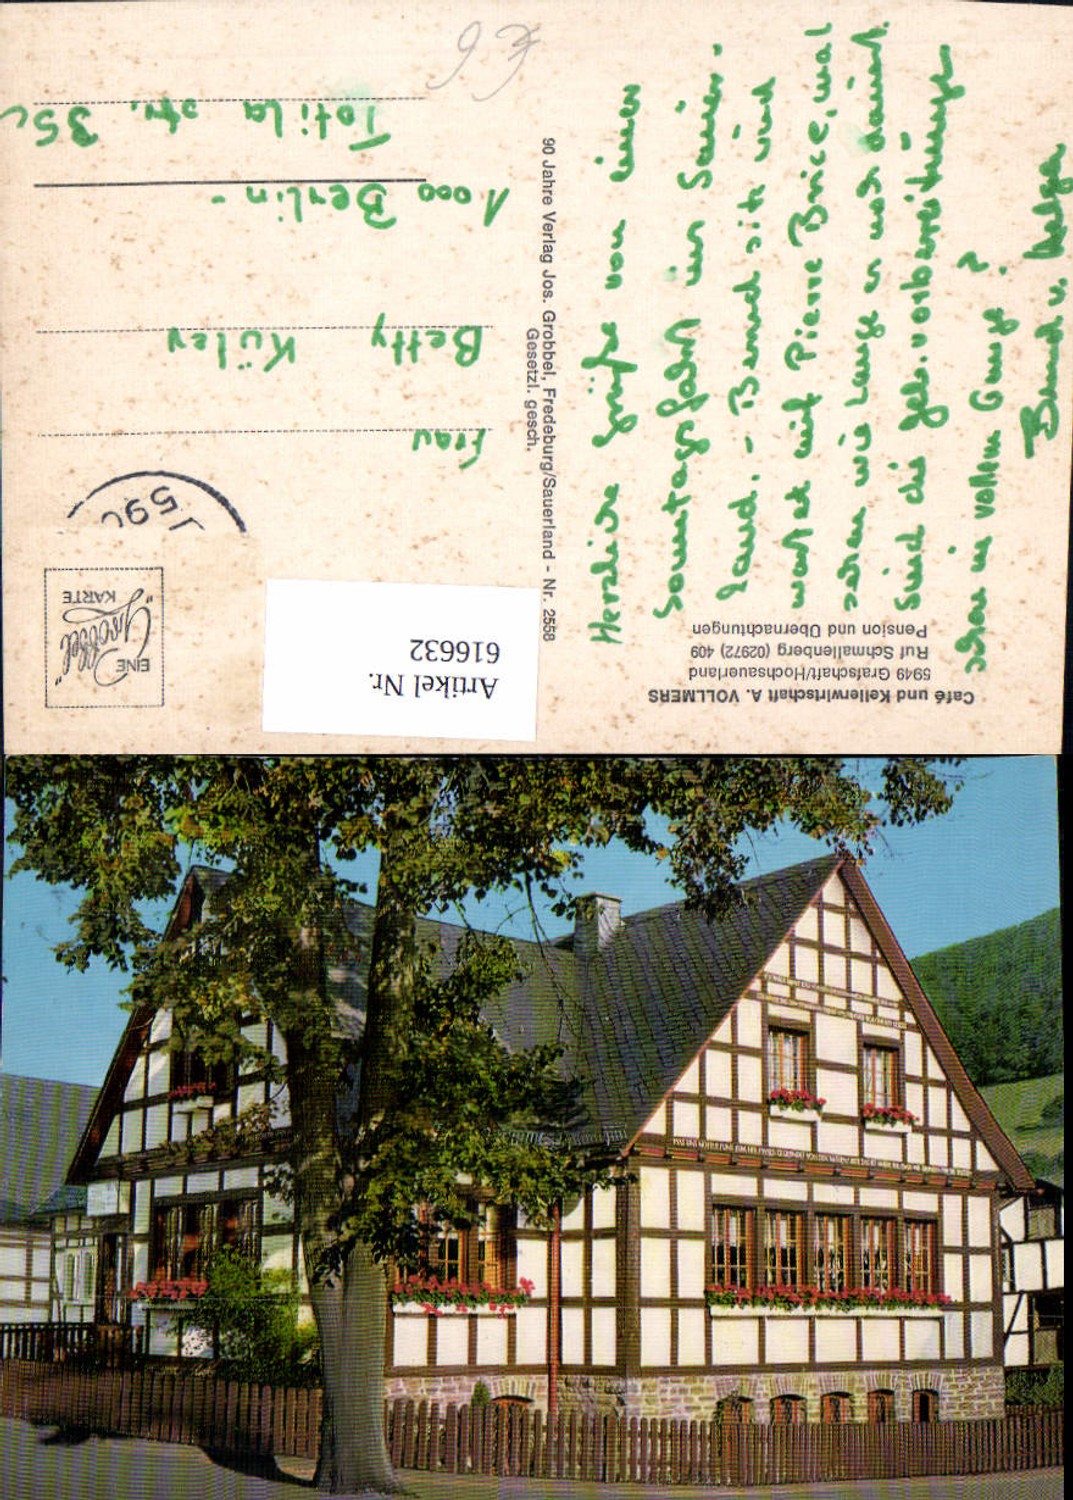 Café und Kellerwirtschaft A. VOLLMERS
5949 Grafschaft/Hochsauerland
Ruf Schmallenberg (02972) 409
Pension und Übernachtungen
Herzliche Grüße von einer
Sonntagsfahrt im Sauer-
land. - Bernd sitzt und
wartet auf Pierre Brice, mal
sehen wie lange er noch
Sind die geb. vorbereitungen
schon in vollem Gange?
Bernd u. Helga
90 Jahre Verlag Jos. Grobbel, Fredeburg/Sauerland - Nr. 2558
Gesetzl. gesch.
Artikel Nr.
616632
EINE
„Grobbel"
KARTE
590
Frau
Betty Küley
1000 Berlin -
Totila str. 35c